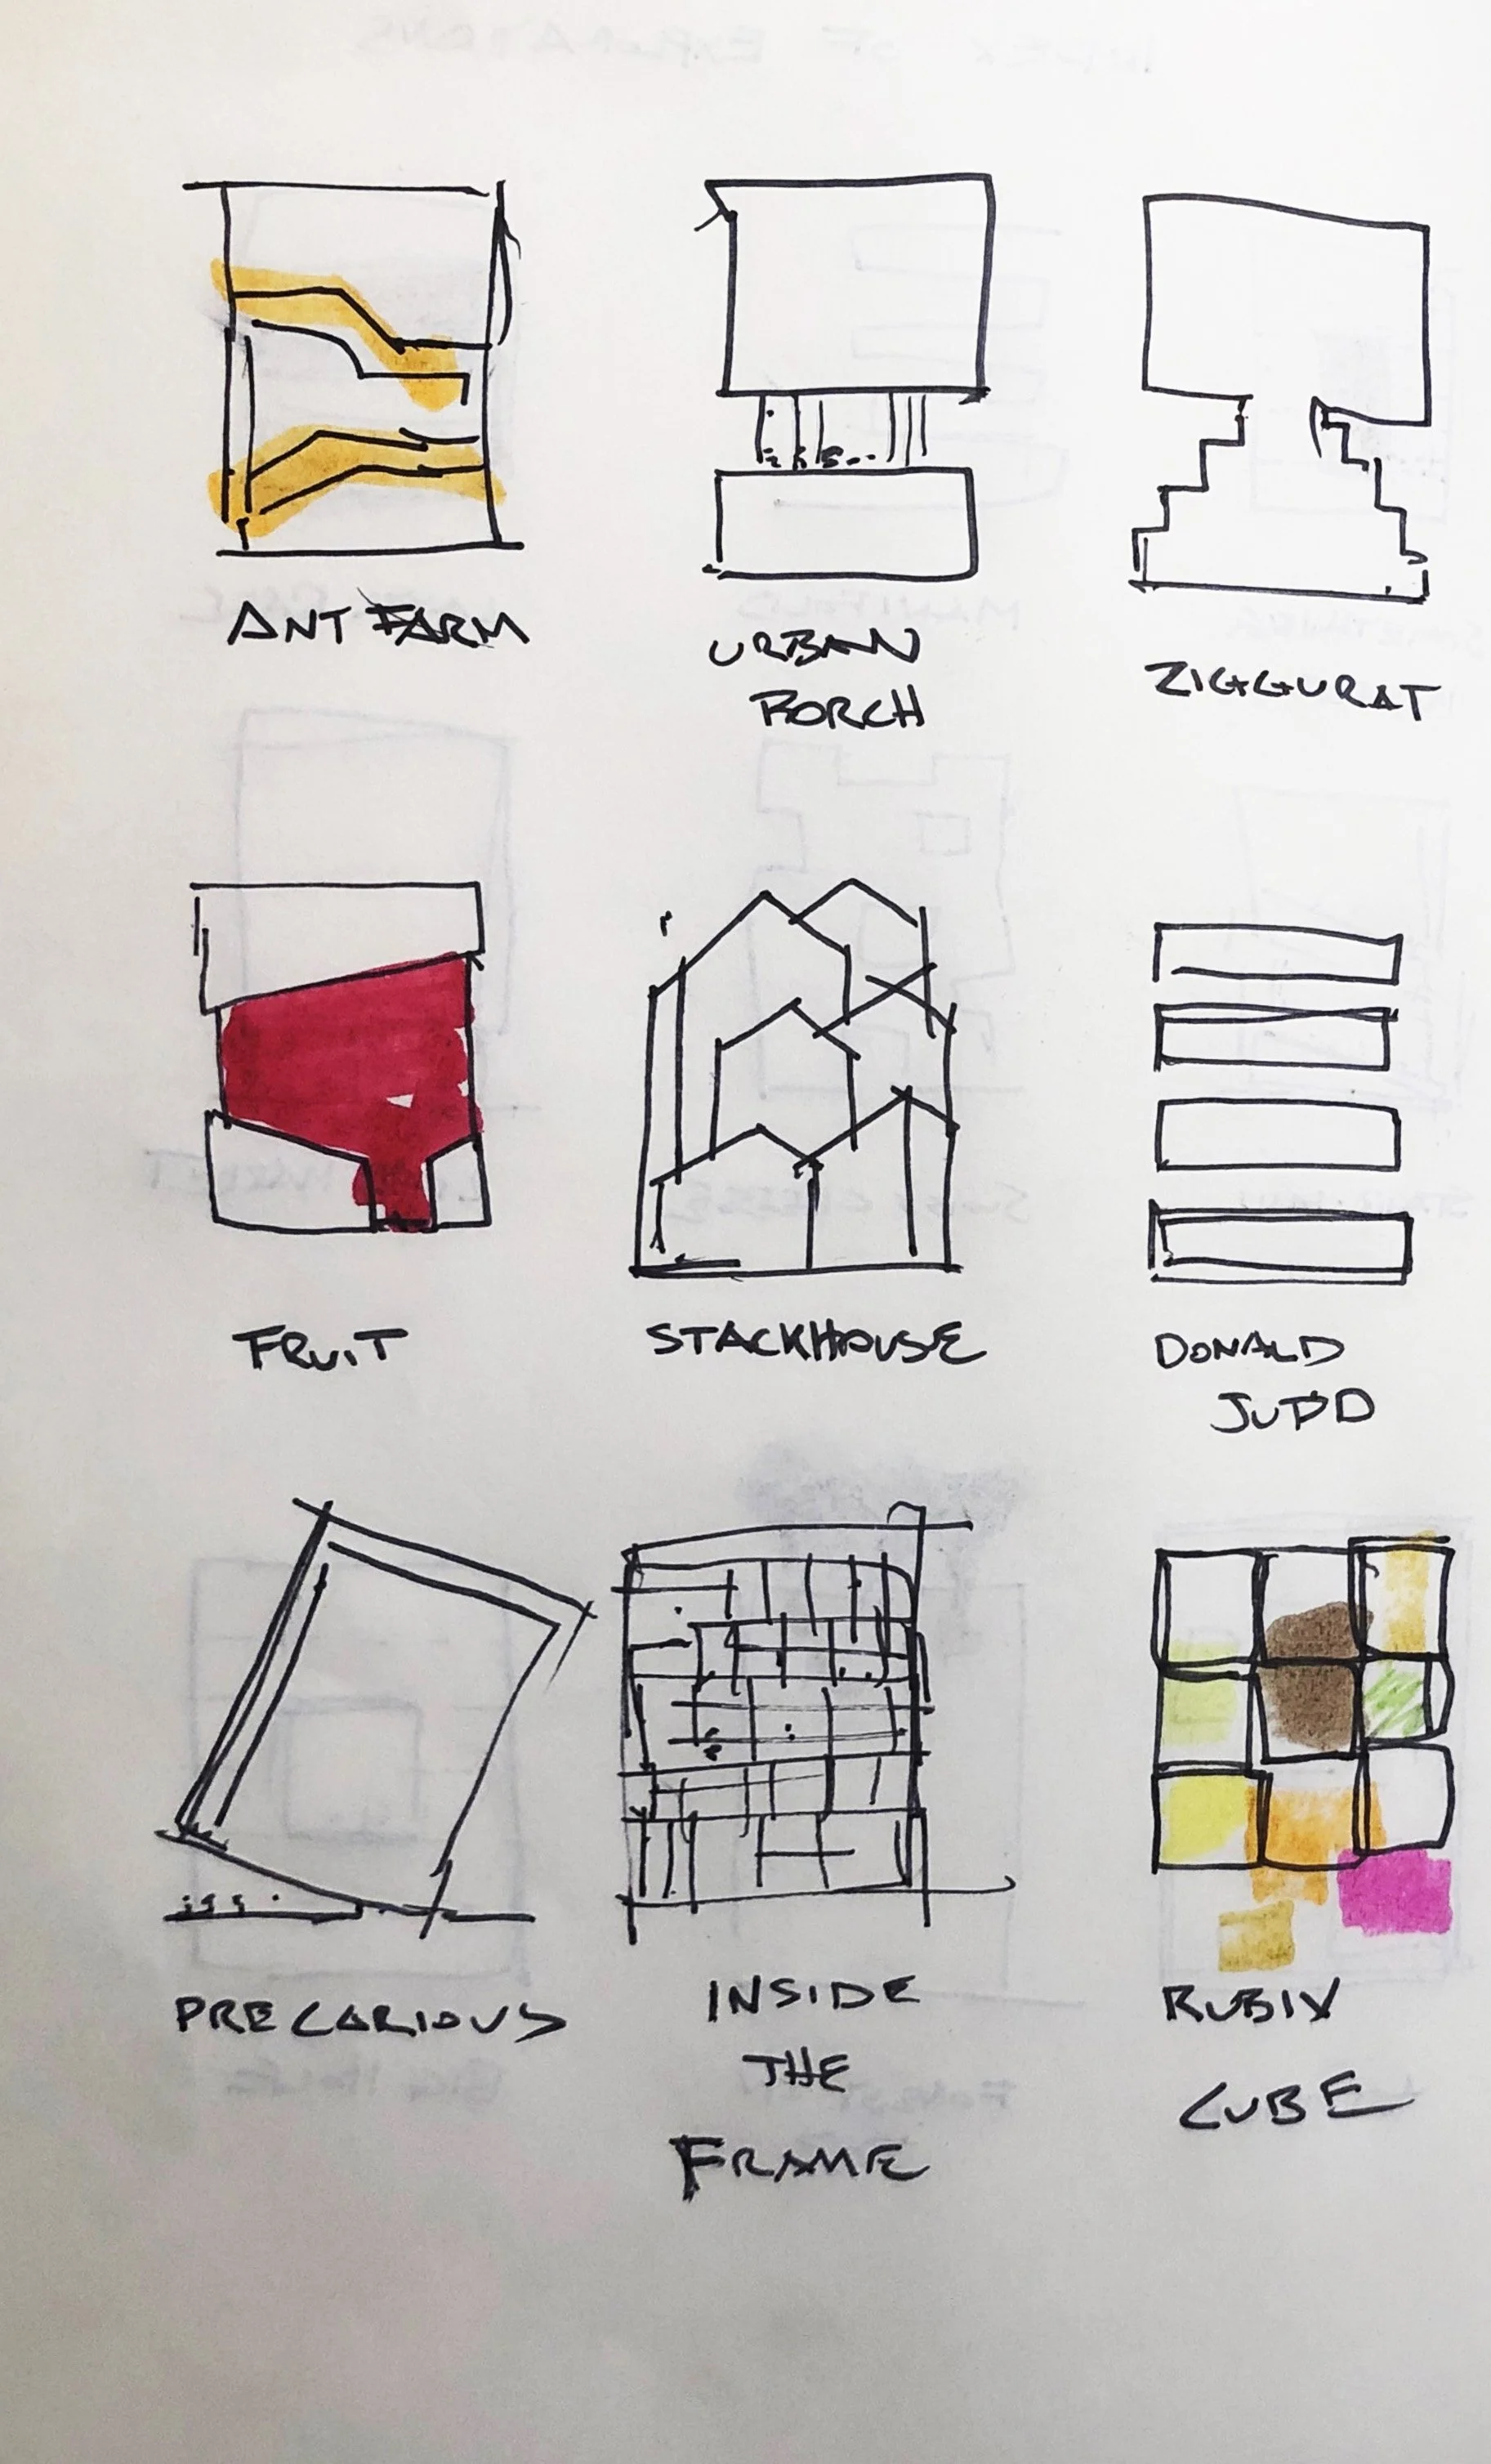 ANT FARM
URBAN
PORCH
ZIGGURAT
FRUIT
STACKHOUSE
DONALD
JUDD
PRECARIOUS
INSIDE
THE
FRAME
RUBIX
CUBE